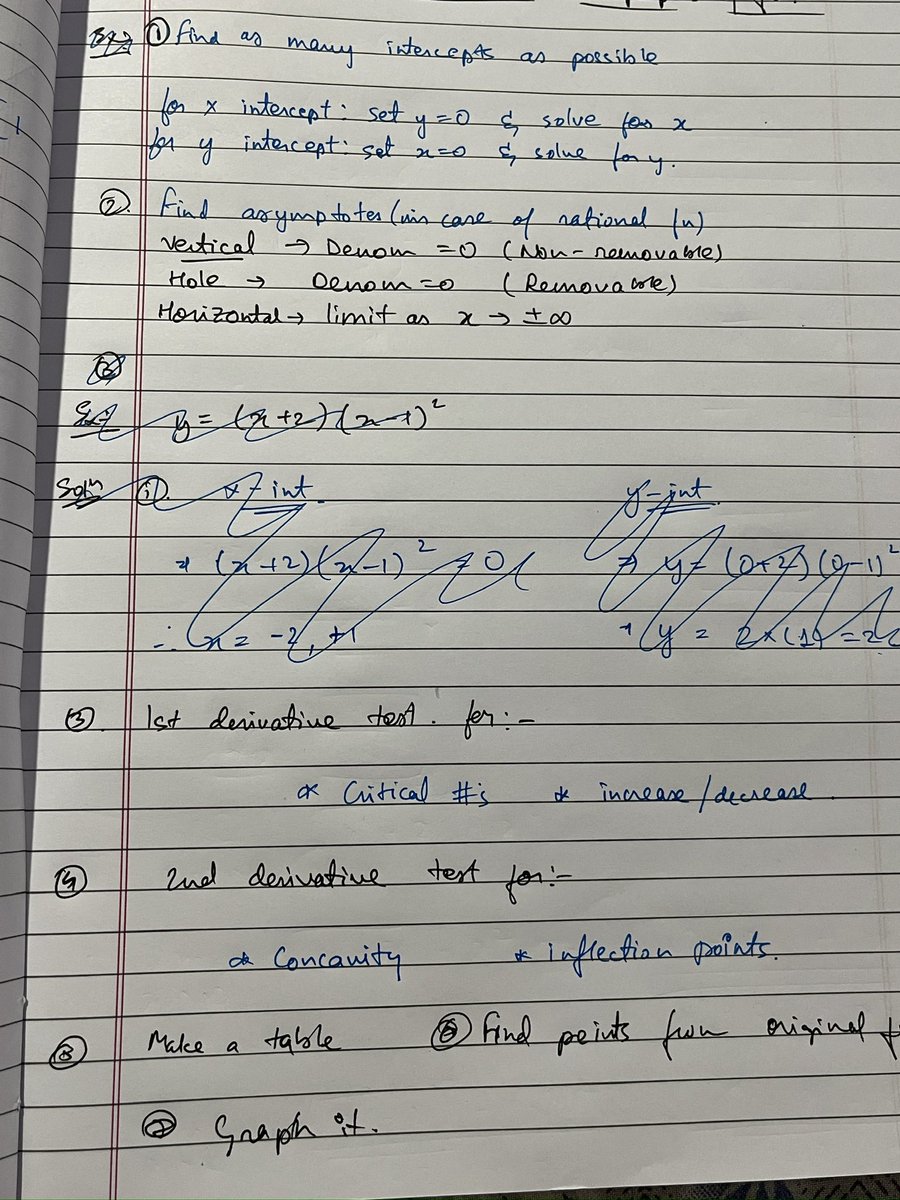 ① Find as many intercepts as possible
for x intercept: set y=0 & solve for x
for y intercept: set x=0 & solve for y.
② Find asymptotes (in case of rational fn)
Vertical → Denom =0 (Non-removable)
Hole → Denom=0 (Removable)
Horizontal → limit as x → ±∞
y = (x+2)(x-1)²
Soln ① x-int y-int
(x+2)(x-1)² = 0 ⇒ y = (0+2)(0-1)²
∴ x = -2, +1 y = 2×(1) = 2
③ 1st derivative test for:-
* Critical #s * increase/decrease.
④ 2nd derivative test for:-
* Concavity * inflection points.
Make a table Find points from original
⑦ Graph it.